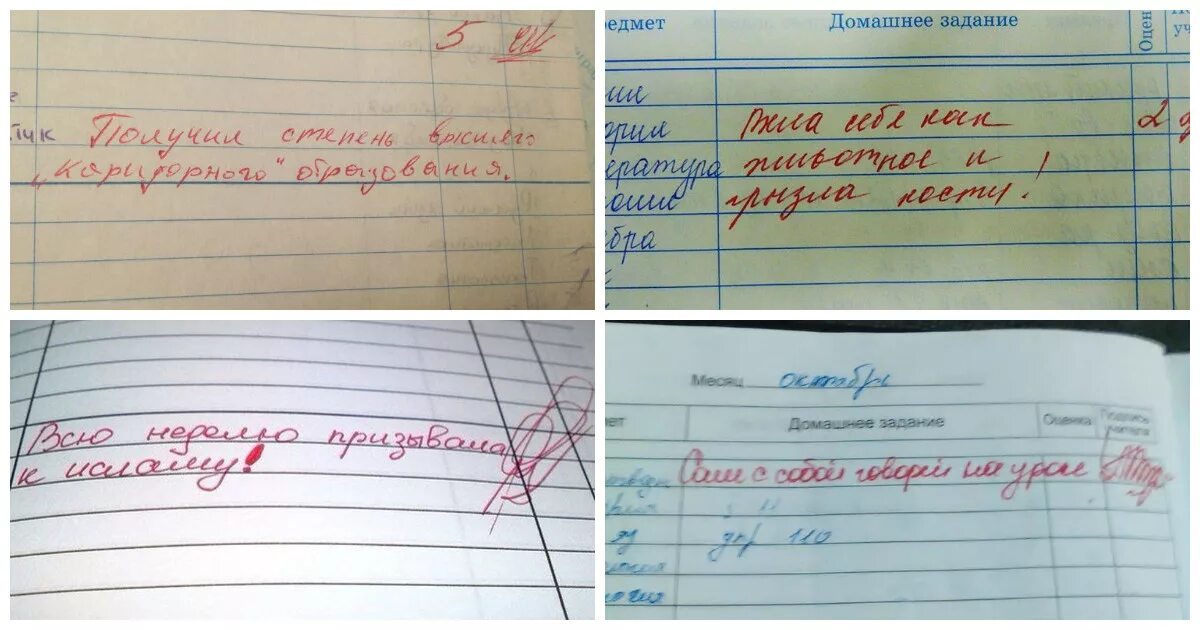 5
Получил степень высшего
„Каридорного" образования.
редмет Домашнее задание Оцен
ории Вела себя как 2
ература животное и
грызла кости!
бра
Всю неделю призывала
к исламу!
Месяц октябрь
мет Домашнее задание Оценка Подпись учителя
Сам с собой говорил на уроке
упр 110